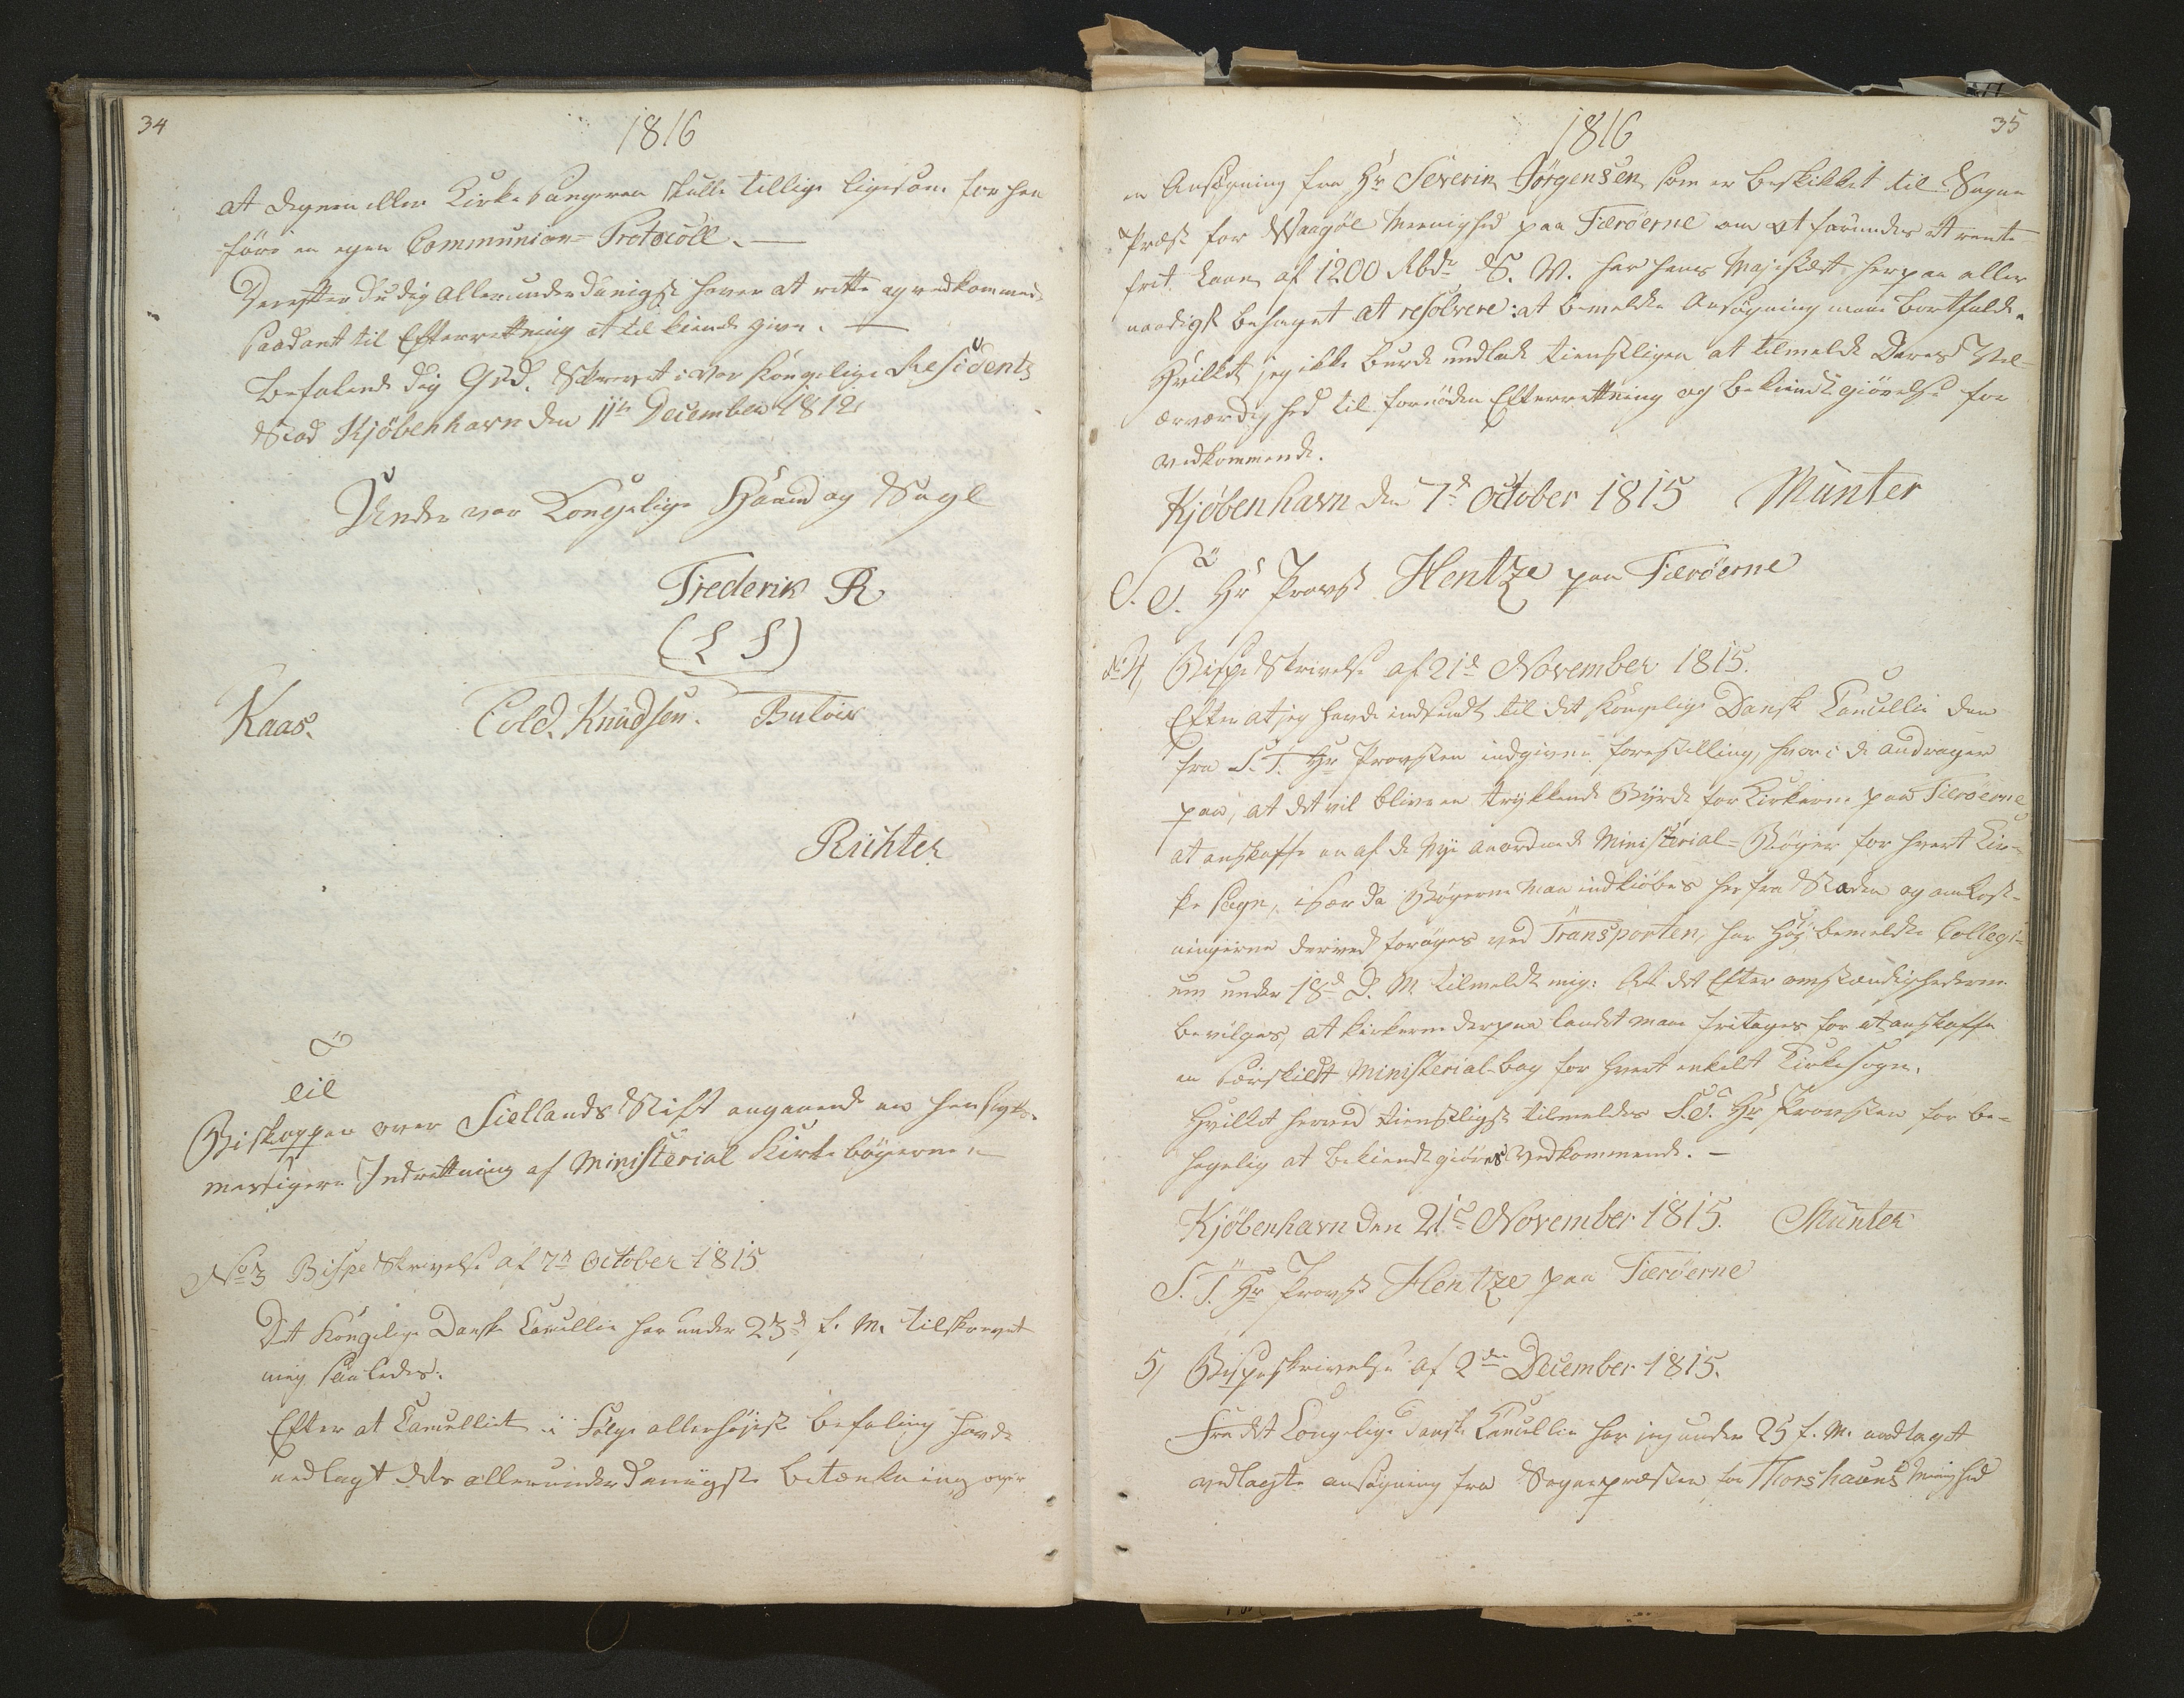 34
1816
at Degnen eller Kirkesangeren skulle tillige ligesom forhen
føre en egen Communion-Protocoll. —
Derefter du dig Allerunderdanigst haver at rette og vedkommende
saadant til Efterretning at tilkiende give. —
Befalende dig Gud. Skrevet i vor Kongelige Residents
Stad Kjöbenhavn den 11te December 1812
Under vor Kongelige Haand og Segl
Frederik R
(L S)
Kaas. Cold. Knudsen. Bülow
Richter
Til
Biskoppen over Siellands Stift angaaende en hensigts-
mæssigere Indretning af Ministerial Kirkebøgerne.
No 3 Bispe Skrivelse af 7de October 1815
Det Kongelige Danske Cancellie har under 23de f. M. tilskrevet
mig saaledes:
Efter at Cancelliet i Følge allerhøjest Befaling havde
nedlagt dets allerunderdanigste Betænkning over
35
1816
en Ansøgning fra Hr Severin Jörgensen, som er beskikket til Sogne
Præst for Waagöe Menighed paa Færöerne om at forundes et rente
frit Laan af 1200 Rbdr S. V. har hans Majestæt herpaa aller
naadigst behaget at resolvere: at bemeldte Ansøgning maae bortfalde.
Hvilket jeg ikke burde undlade tienstligen at tilmelde Deres Vel-
ærværdighed til fornøden Efterretning og Bekiendtgiørelse for
vedkommende.
Kjöbenhavn den 7de October 1815 Münter
S. T. Hr Provst Hentze paa Færöerne
No 4, Bispe Skrivelse af 21de November 1815.
Efter at jeg havde indsendt til det Kongelige Danske Cancellie den
fra S. T. Hr Provsten indgivne forestilling, hvori de andrager
paa, at det vil blive en trykkende Byrde for Kirkerne paa Færöerne
at anskaffe en af de Nye anordnede Ministerial-Bøger for hvert Kir-
ke Sogn, især da Bøgerne maa indkiøbes her fra Staden og omkost-
ningerne derved forøges ved Transporten, har Høj bemeldte Collegi-
um under 18de D. M. tilmeldt mig: At det efter omstændighederne
bevilges, at Kirkerne derpaa landet maae fritages for at anskaffe
en særskildt Ministerial-bog for hvert enkelt Kirkesogn.
Hvilket herved tienstligst tilmeldes S. T. Hr Provsten for be-
hagelig at bekiendtgiøres Vedkommende. —
Kjöbenhavn den 21de November 1815. Münter
S. T. Hr Provst Hentze paa Færöerne
5, Bispeskrivelse af 2den December 1815.
Fra det Kongelige Danske Cancellie har jeg under 25 f. M. modtaget
vedlagte ansøgning fra Sognepræsten for Thorshauns Menighed